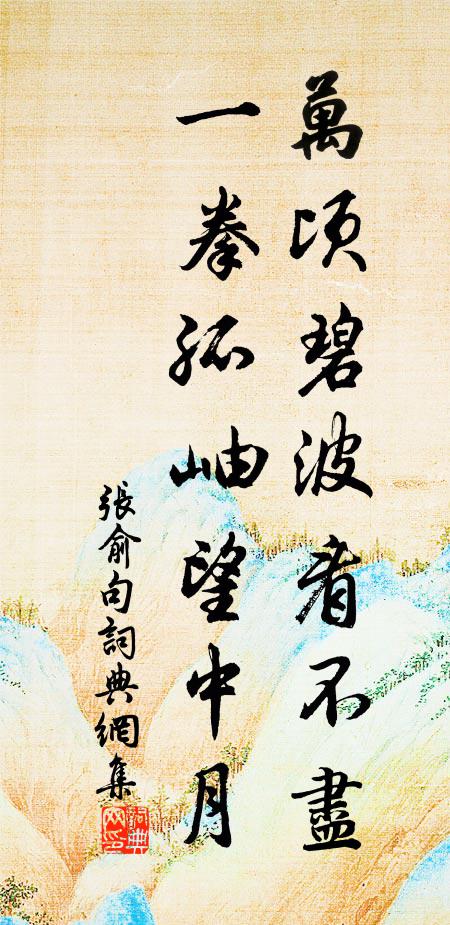 萬頃碧波看不盡
一拳孤岫望中月
張俞句詞典網集
詞典网印